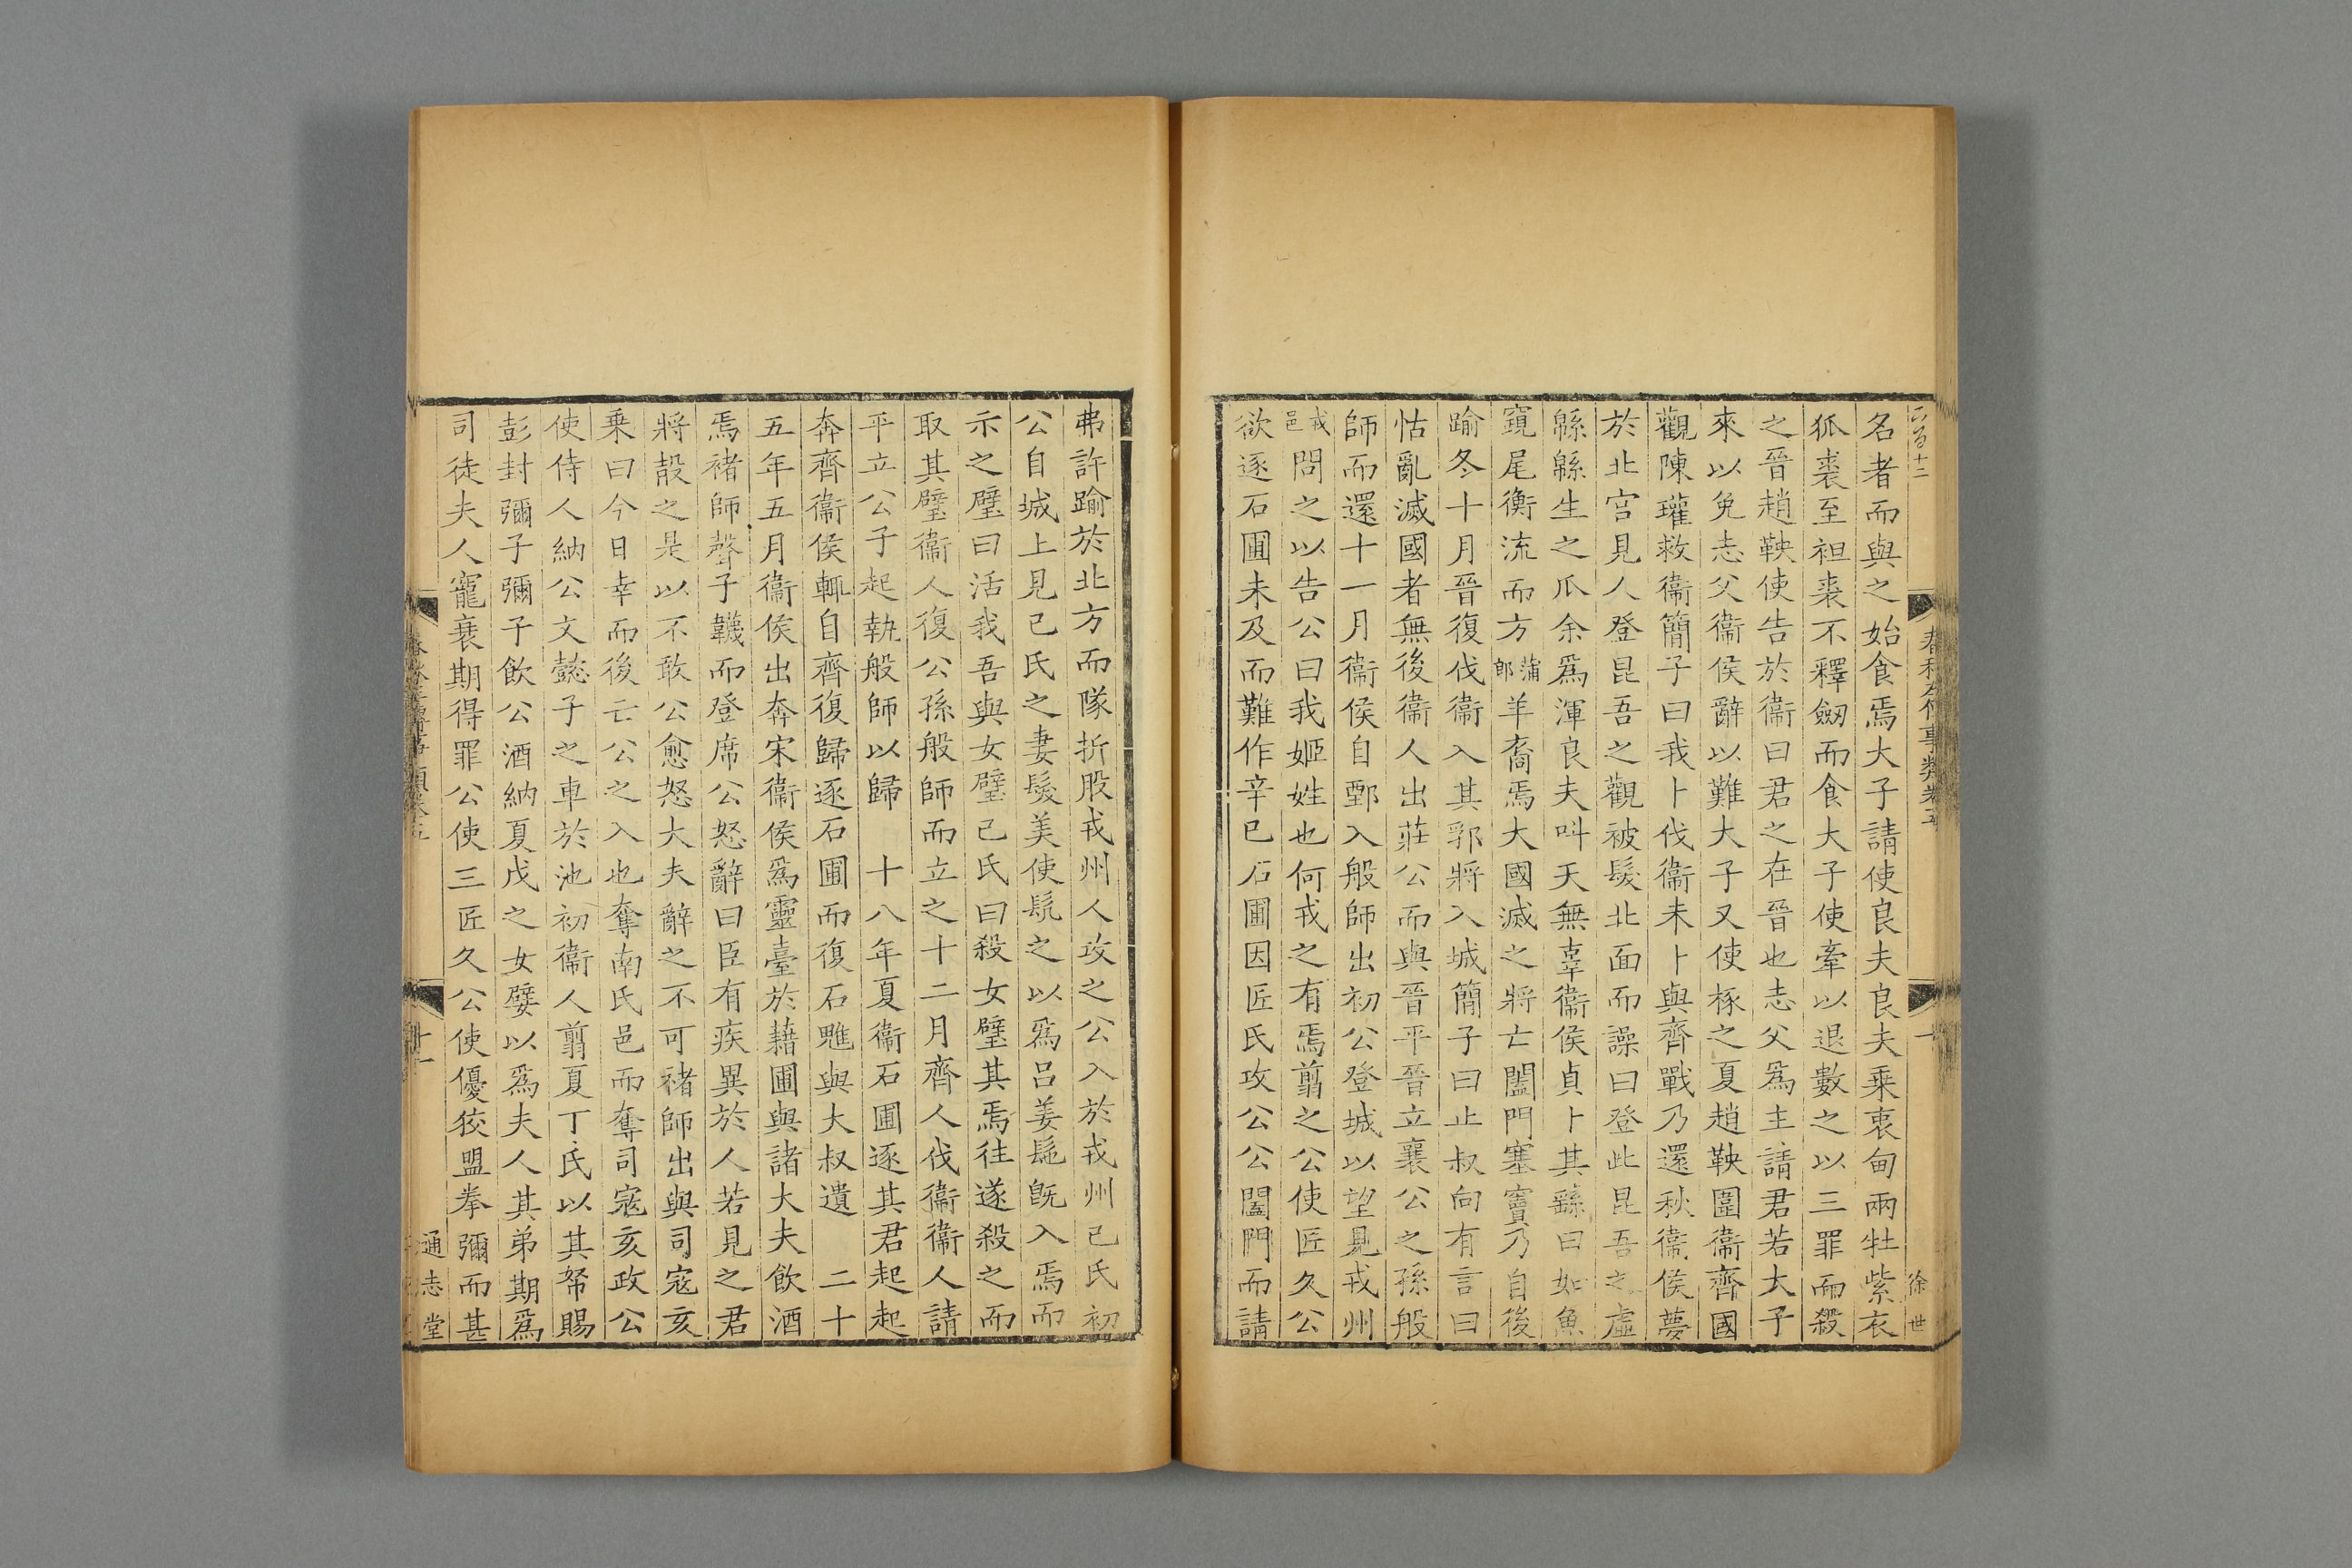 名者而與之始食焉大子請使良夫良夫乗衷甸兩牡紫衣
狐裘至袒裘不釋劒而食大子使牽以退數之以三罪而殺
之晉趙鞅使告於衞曰君之在晉也志父爲主請君若大子
來以免志父衞侯辭以難大子又使椓之夏趙鞅圍衞齊國
觀陳瓘救衞簡子曰我卜伐衞未卜與齊戰乃還秋衞侯夢
於北宫見人登昆吾之觀被髮北面而譟曰登此昆吾之虛
緜緜生之瓜余爲渾良夫叫天無辜衞侯貞卜其繇曰如魚
竀尾衡流而方蒲郎羊裔焉大國滅之將亡闔門塞竇乃自後
踰冬十月晉復伐衞入其郛將入城簡子曰止叔向有言曰
怙亂滅國者無後衞人出莊公而與晉平晉立襄公之孫般
師而還十一月衞侯自鄄入般師出初公登城以望見戎州
戎邑問之以告公曰我姬姓也何戎之有焉翦之公使匠久公
欲逐石圃未及而難作辛已石圃因匠氏攻公公闔門而請
弗許踰於北方而隊折股戎州人攻之公入於戎州己氏初
公自城上見己氏之妻髮美使髡之以爲呂姜髢旣入焉而
示之璧曰活我吾與女璧己氏曰殺女璧其焉往遂殺之而
取其璧衞人復公孫般師而立之十二月齊人伐衞衞人請
平立公子起執般師以歸 十八年夏衞石圃逐其君起起
奔齊衞侯輒自齊復歸逐石圃而復石魋與大叔遺 二十
五年五月衞侯出奔宋衞侯爲靈臺於藉圃與諸大夫飲酒
焉褚師聲子韤而登席公怒辭曰臣有疾異於人若見之君
將嗀之是以不敢公愈怒大夫辭之不可褚師出與司寇亥
乗曰今日幸而後亡公之入也奪南氏邑而奪司寇亥政公
使侍人納公文懿子之車於池初衞人翦夏丁氏以其帑賜
彭封彌子彌子飲公酒納夏戊之女嬖以爲夫人其弟期爲
司徒夫人寵衰期得罪公使三匠久公使優狡盟拳彌而甚
通志堂